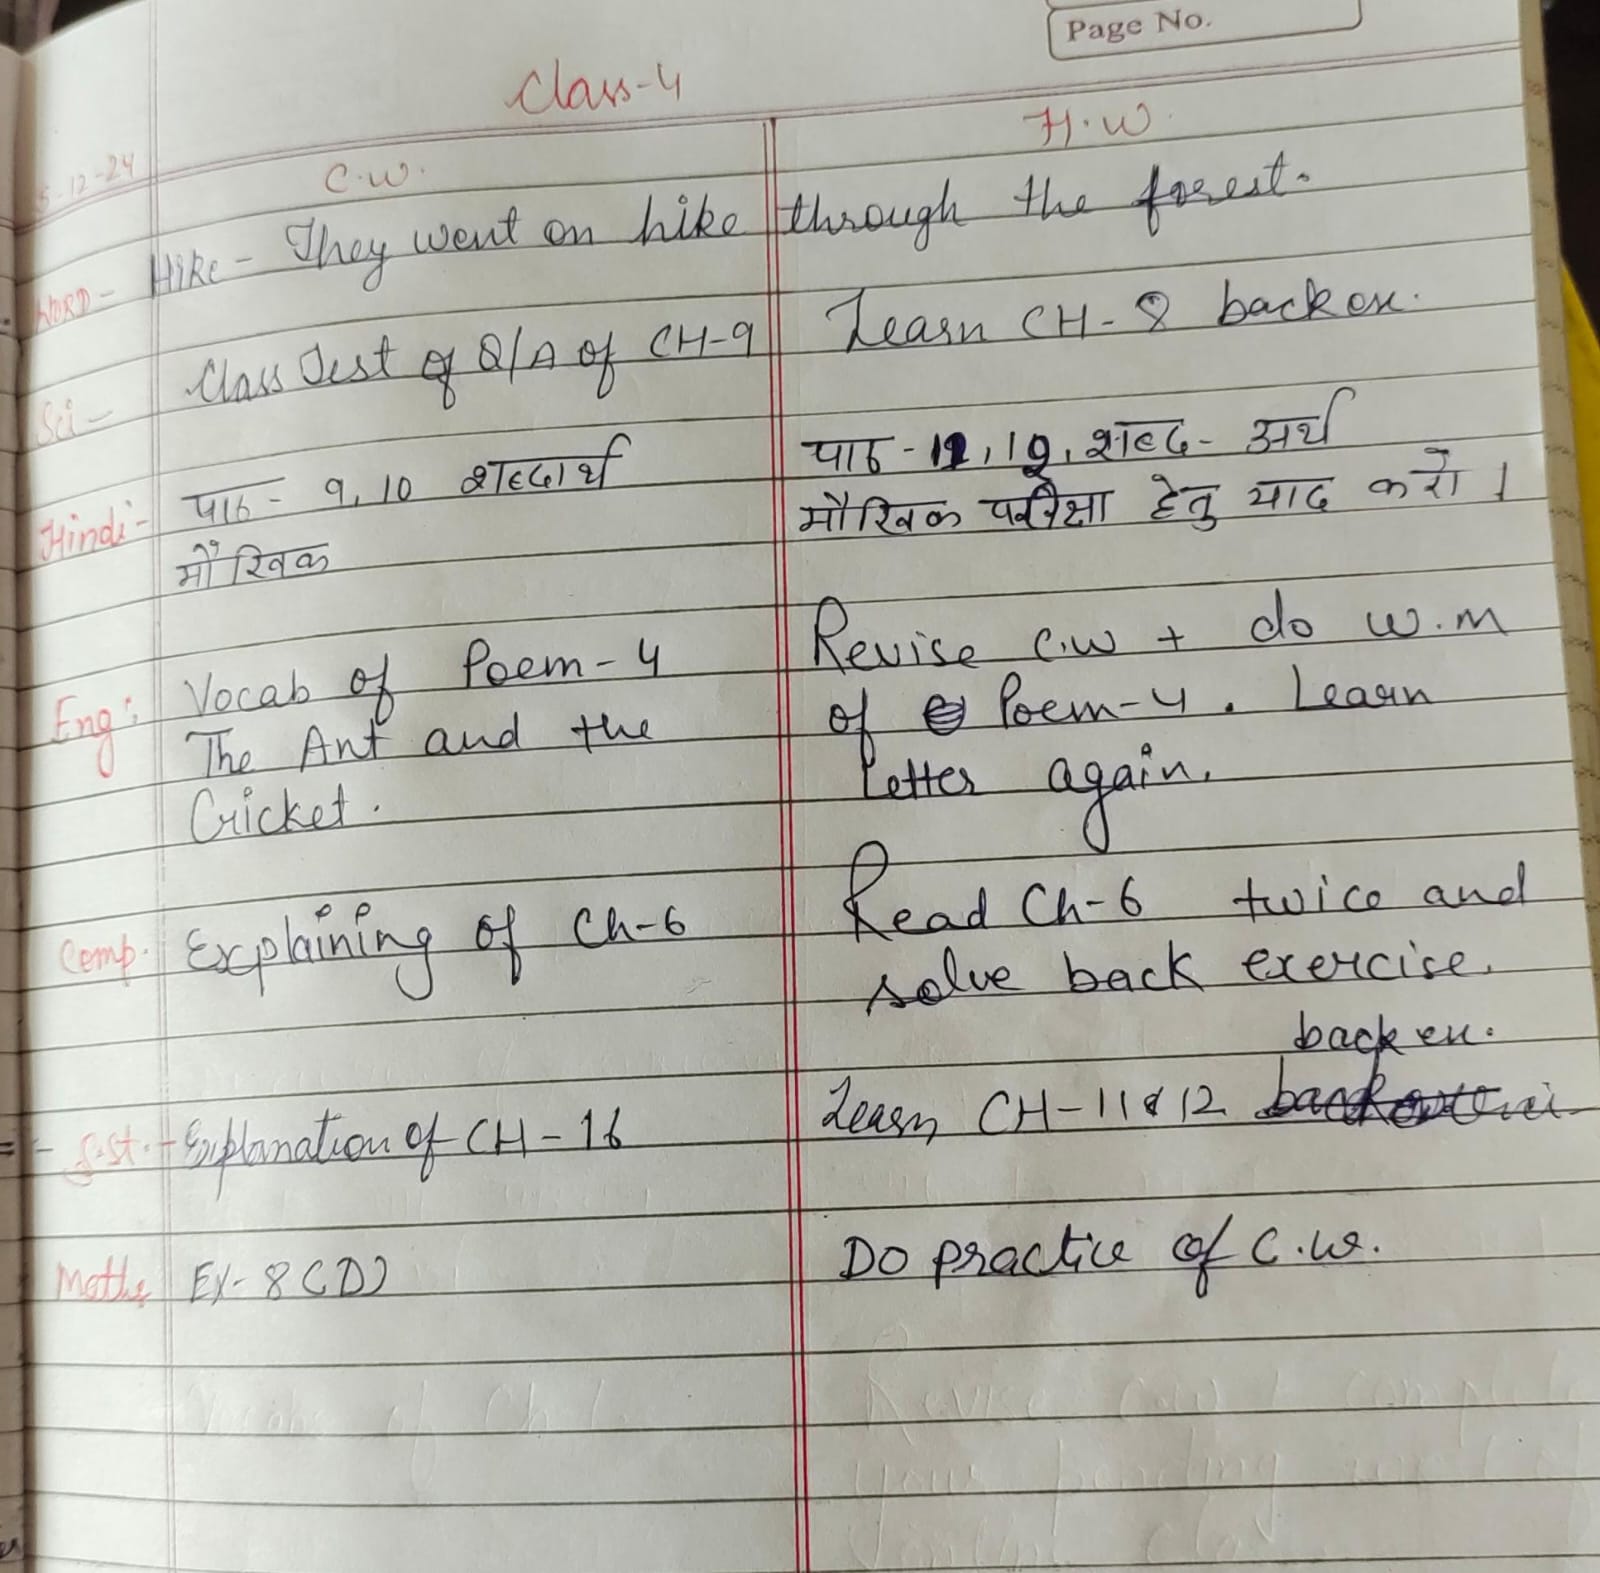 Page No.
Class-4
5-12-24 C.W. H.W.
WORD- Hike - They went on hike through the forest.
Sci- Class Test of Q/A of CH-9 Learn CH-8 back ex.
Hindi- पाठ - 9, 10 शब्दार्थ पाठ - 11, 12, शब्द - अर्थ
मौखिक मौखिक परीक्षा हेतु याद करो।
Eng: Vocab of Poem-4 Revise C.W + do w.m
The Ant and the of Poem-4. Learn
Cricket. letter again.
Comp. Explaining of Ch-6 Read Ch-6 twice and
solve back exercise.
back ex.
S.st. - Explanation of CH-16 Learn CH-11 & 12
Maths EX-8(D) Do practice of C.W.